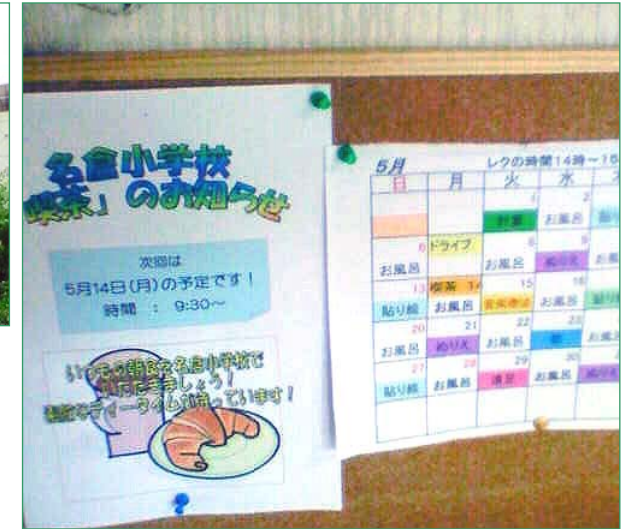 名倉小学校
喫茶」のお知らせ
次回は
5月14日(月)の予定です!
時間 : 9:30~
いつもの朝食を名倉小学校で
いただきましょう!
素敵なティータイムが待っています!
5月 レクの時間14時~15
日 月 火 水
1 2
お風呂 貼り
6 ドライブ 8 9
お風呂 お風呂 ぬりえ お風
13 喫茶 14 15 16
貼り絵 お風呂 音楽療法 お風呂 貼り
20 21 22 23
お風呂 ぬりえ お風呂 お風
27 28 29 30
貼り絵 お風呂 遠足 お風呂 ぬりえ